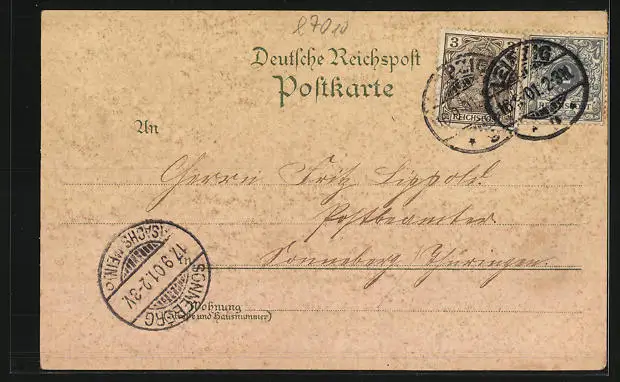 87010
3
REICHSPOST
LEIPZIG
16.9.01.2-3N
REICHSPOST
Deutsche Reichspost
Postkarte
An
Herrn Fritz Lippold.
Postbeamter
Sonneberg /Thüringen.
SONNEBERG
(SACHS.-MEIN.)
17.9.01.2-3V
Wohnung
(Straße und Hausnummer)